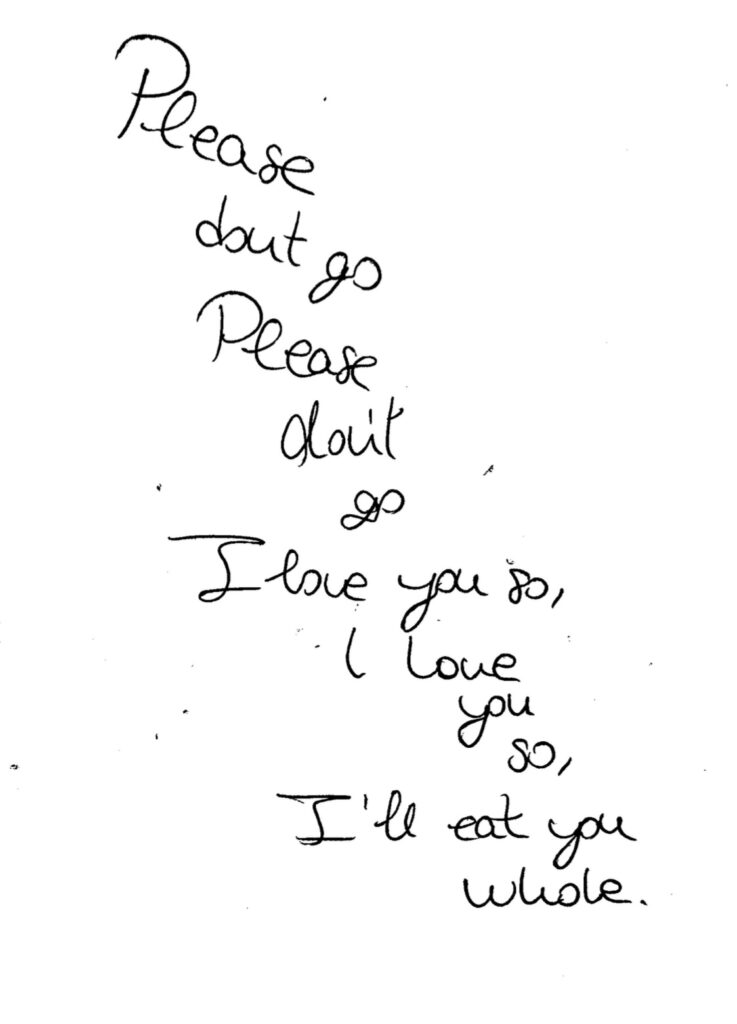 Please
dont go
Please
don't
go
I love you so,
I love
you
so,
I'll eat you
whole.